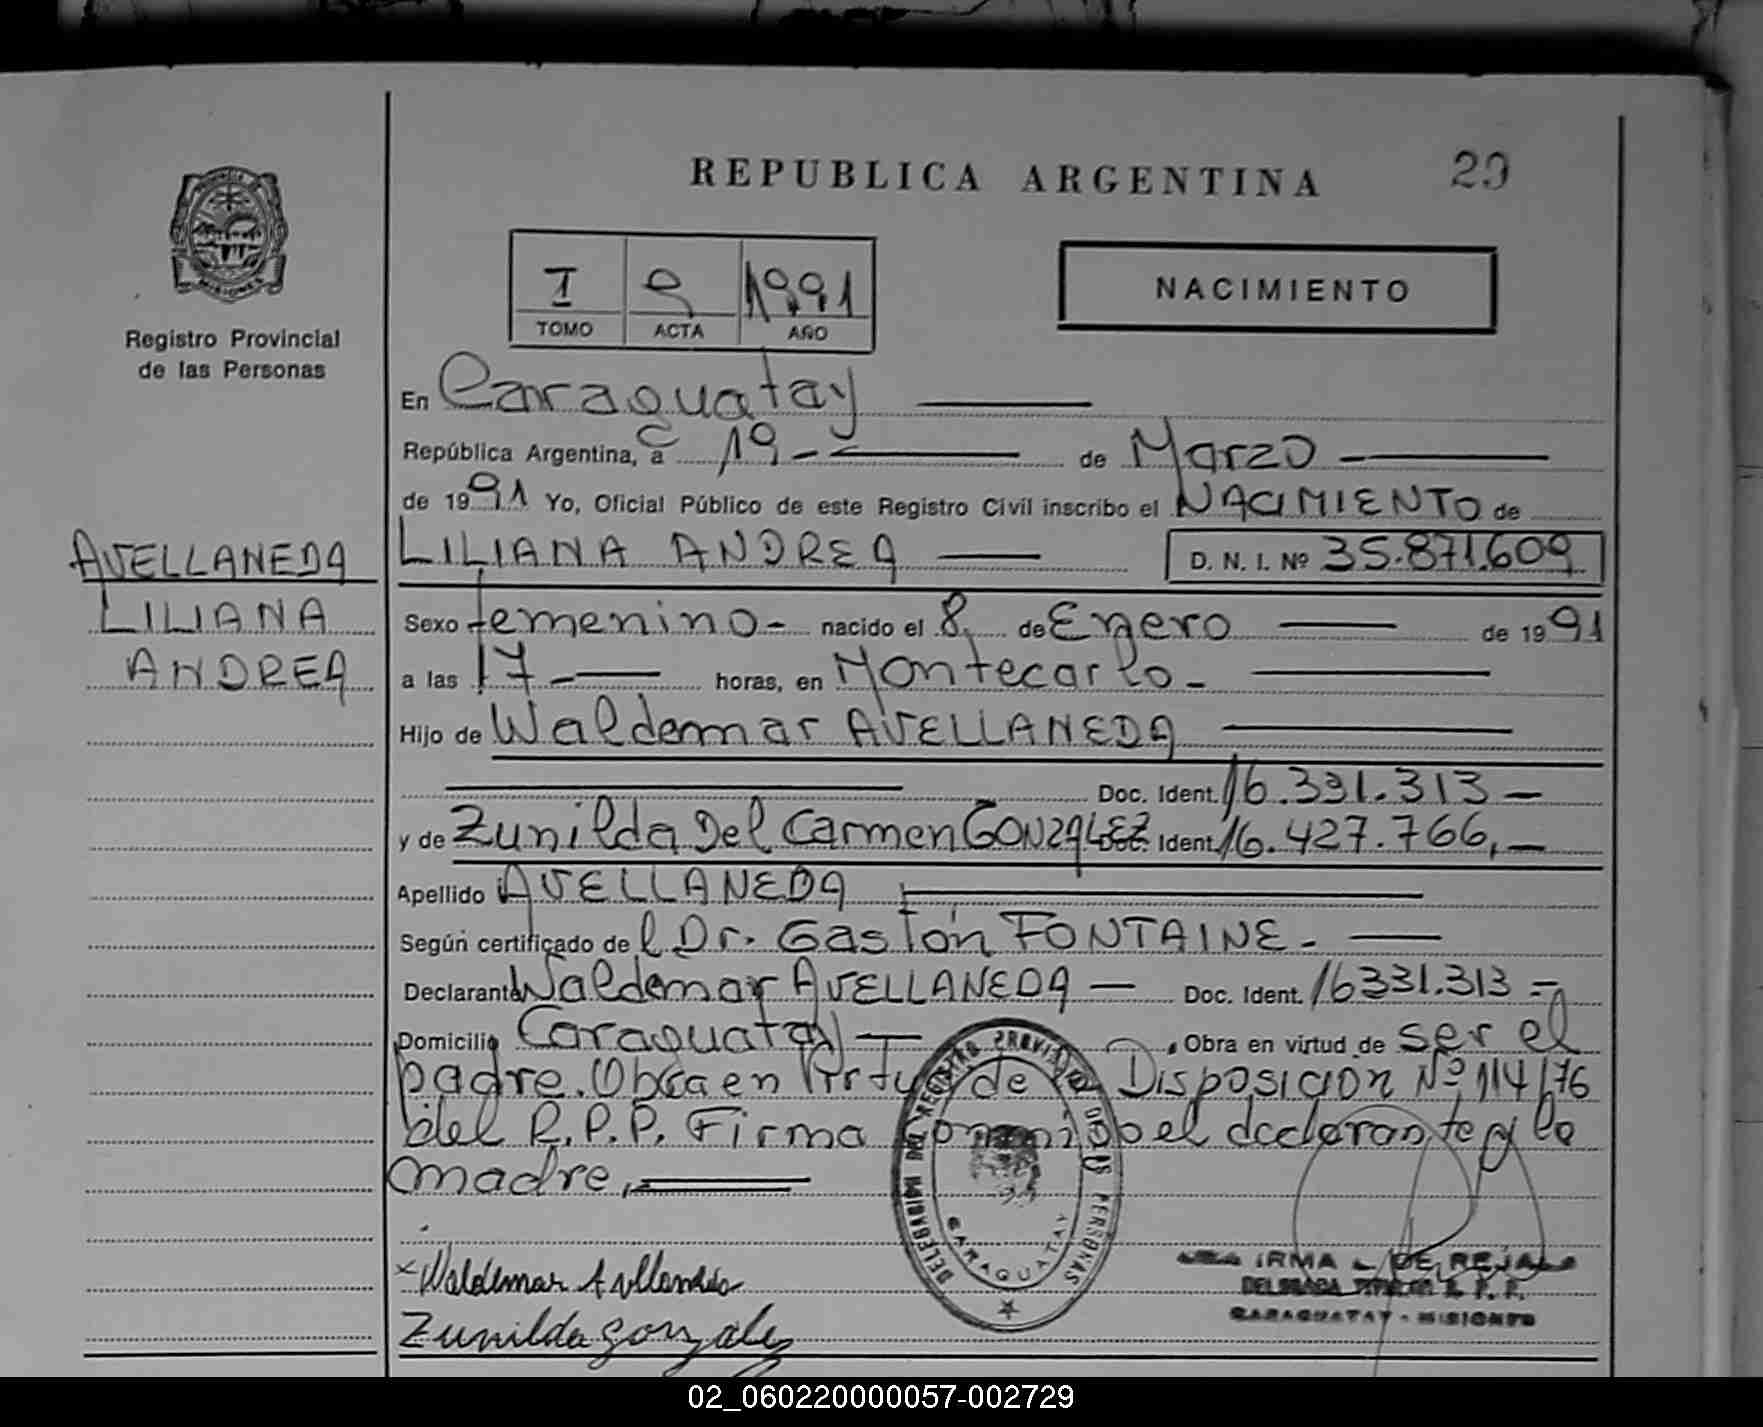 REPUBLICA ARGENTINA
29
Registro Provincial
de las Personas
MISIONES
I 9 1991
TOMO ACTA AÑO
NACIMIENTO
En Caraguatay
República Argentina, a 19 - de Marzo -
de 1991 Yo, Oficial Público de este Registro Civil inscribo el NACIMIENTO de
AVELLANEDA
LILIANA
ANDREA
LILIANA ANDREA D. N. I. Nº 35.871.609
Sexo femenino - nacido el 8 de Enero de 1991
a las 17 - horas, en Montecarlo -
Hijo de Waldemar AVELLANEDA
Doc. Ident. 16.331.313 -
y de Zunilda Del Carmen GONZALEZ Doc. Ident. 16.427.766, -
Apellido AVELLANEDA
Según certificado del Dr. Gastón FONTAINE. -
Declarante Waldemar AVELLANEDA - Doc. Ident. 16331.313 =
Domicilio Caraguatay - , Obra en virtud de ser el
padre. Obra en Virtud de la Disposicion Nº 114/76
del R.P.P. Firma el declarante y la
madre,
DELEGACION DEL REGISTRO PROVINCIAL DE LAS PERSONAS
CARAGUATAY
x Waldemar Avellaneda
Zunilda Gonzalez
IRMA L. DE REJALA
DELEGADA TITULAR R. P. P.
CARAGUATAY - MISIONES
02_060220000057-002729